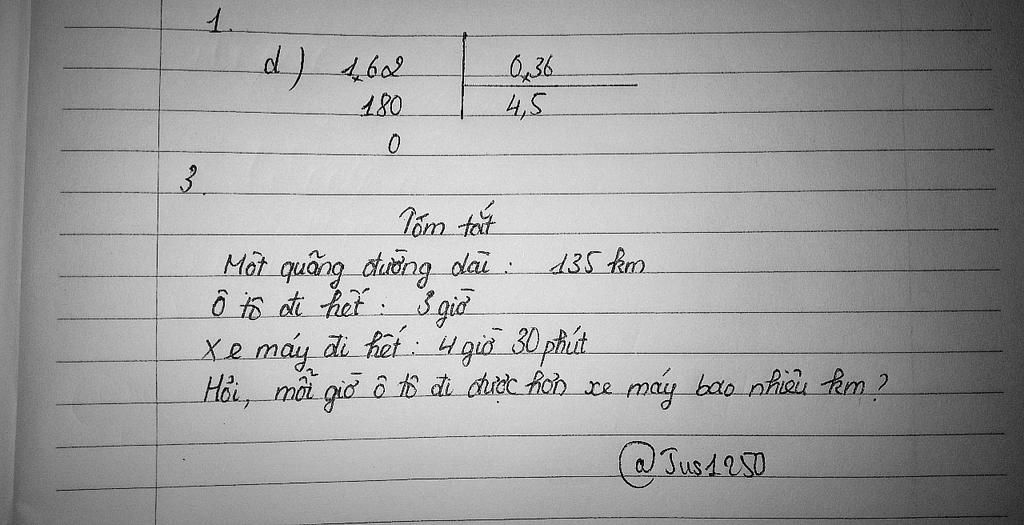 1.
d) 1,62 0,36
180 4,5
0
3.
Tóm tắt
Một quãng đường dài : 135 km
Ô tô đi hết : 3 giờ
Xe máy đi hết : 4 giờ 30 phút
Hỏi, mỗi giờ ô tô đi được hơn xe máy bao nhiêu km ?
@Jus1250